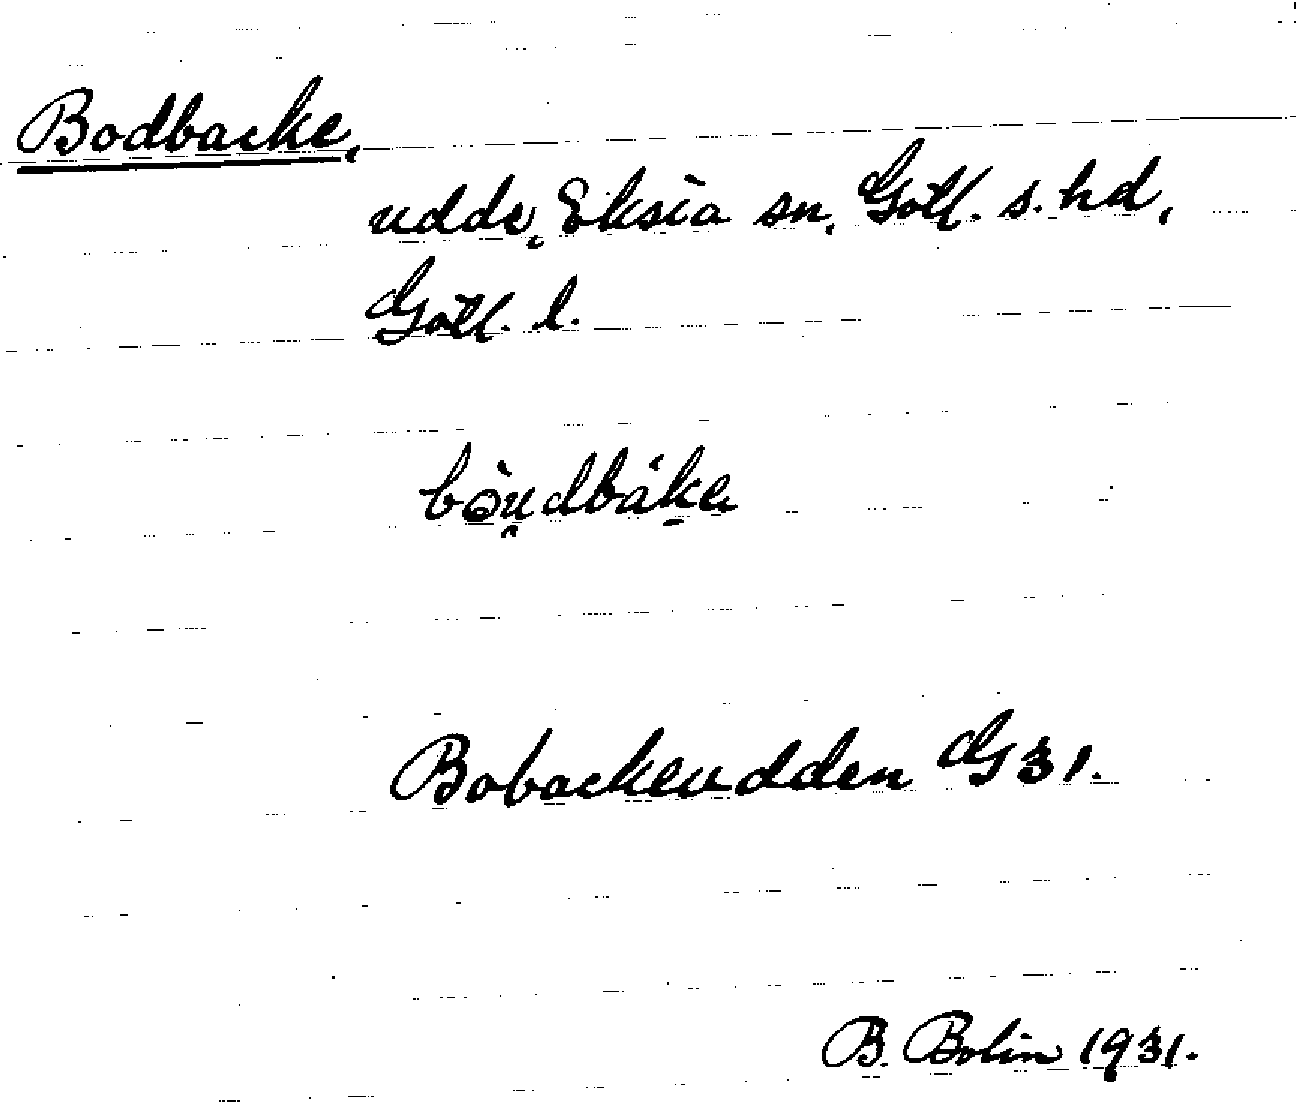 Bodbacke,
udde, Eksta sn, Gotl. s. hd,
Gotl. l.
bòu̯dbáka
Bobackeudden G 31.
B. Bolin 1931.